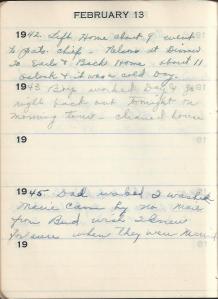 FEBRUARY 13
1942. Left Home about 9 went
to Pats. chief - Nelson at Dinner
To Earls & Back Home about 11
oclock & it was a cold Day.
1943 Boys worked Day &
right back out tonight on
morning tour - cleaned house
19
1945 Dad worked I washed
Marie Came by no mail
from Bud wish I knew
for sure when they were
19